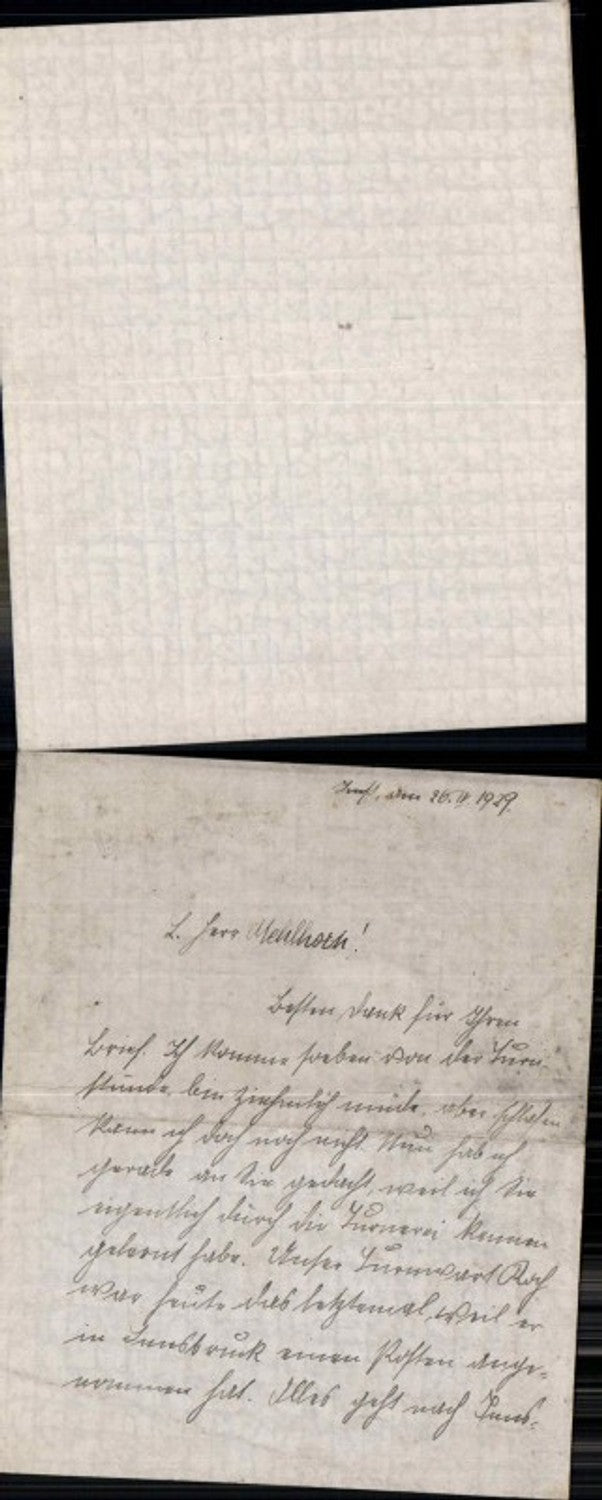 Imst, den 26. IV 1929.
L. Herr Mehlhorn!
Besten Dank für Ihren
Brief. Ich komme soeben von der Turn-
stunde, bin ziehmlich müde, aber schlafen
kann ich doch noch nicht. Nun hab ich
gerade an Sie gedacht, weil ich Sie
eigentlich durch die Turnerei kennen
gelernt habe. Unser Turnwart Koch
war heute das letztemal, weil er
in Innsbruck einen Posten ange-
nommen hat. Alles geht nach Inns-